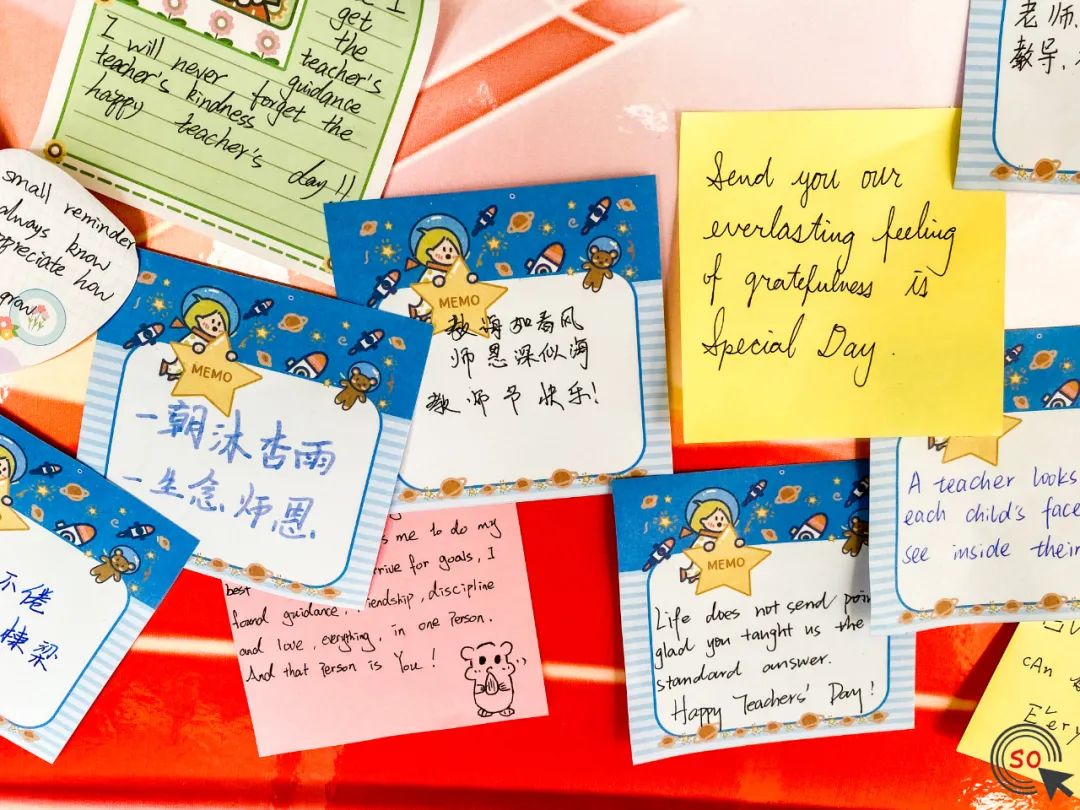 I
get
the
teacher's
I will never guidance
teacher's kindness forget the
happy teacher's day!!
small reminder
always know
appreciate how
grow
MEMO
教诲如春风
师恩深似海
教师节快乐!
Send you our
everlasting feeling
of gratefulness is
Special Day.
老师
教导、
MEMO
一朝沐杏雨
一生念师恩
不倦
栋梁
me to do my
best
for goals, I
found guidance, friendship, discipline
and love, everything, in one Person.
And that Person is You!
MEMO
Life does not send
glad you taught us the
standard answer.
Happy Teachers' Day!
A teacher looks
each child's face
see inside their
can
Every
SO